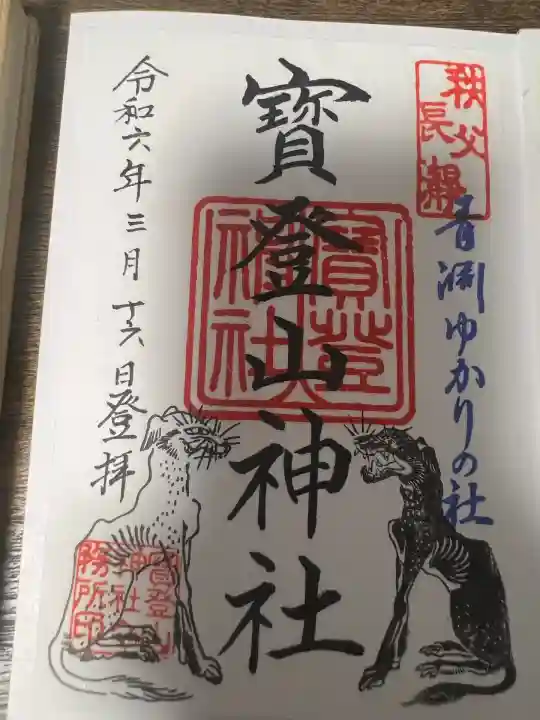 秩父
長瀞
青淵ゆかりの社
寳登山神社
寳登
山神社
令和六年三月十六日登拝
寳登山
神社
務所印